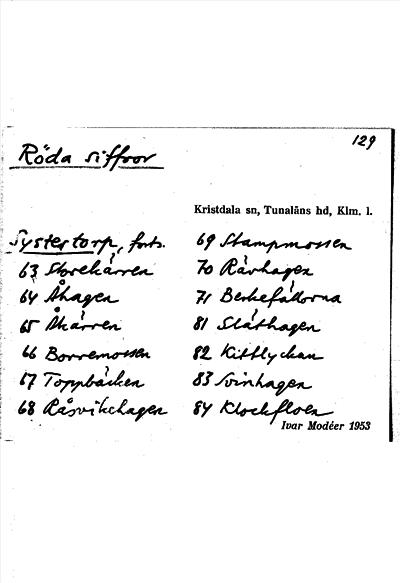 129
Röda siffror
Kristdala sn, Tunaläns hd, Klm. l.
Systertorp, forts.
63 Storekärren
64 Åhagen
65 Åkärren
66 Borremossen
67 Toppbäcken
68 Råsvikehagen
69 Stampmossen
70 Rävhagen
71 Berkefållorna
81 Slåthagen
82 Kittlyckan
83 Svinhagen
84 Klockfloen
Ivar Modéer 1953